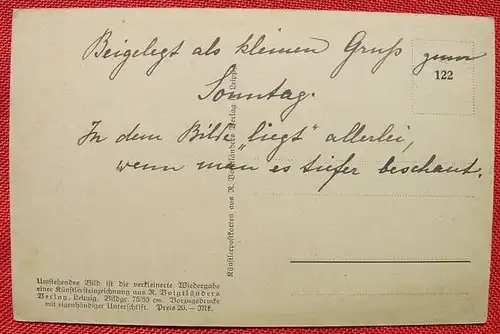 Beigelegt als kleinen Gruß zum
122
Sonntag.
In dem Bilde „liegt“ allerlei,
wenn man es tiefer beschaut.
Künstlerpostkarten aus R. Voigtländers Verlag in Leipzig
Umstehendes Bild ist die verkleinerte Wiedergabe
einer Künstlersteinzeichnung aus R. Voigtländers
Verlag, Leipzig. Bildgr. 75/55 cm. Vorzugsdrucke
mit eigenhändiger Unterschrift. Preis 20.— Mk.